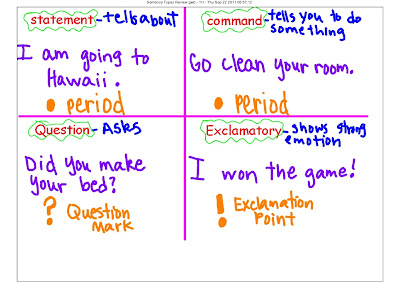 Sentence Types Review.gwb - 1/1 - Thu Sep 22 2011 08:57:12
statement - tells about
I am going to
Hawaii.
• period
command - tells you to do
something
Go clean your room.
• Period
Question - Asks
Did you make
your bed?
? Question
Mark
Exclamatory - shows strong
emotion
I won the game!
! Exclanation
Point